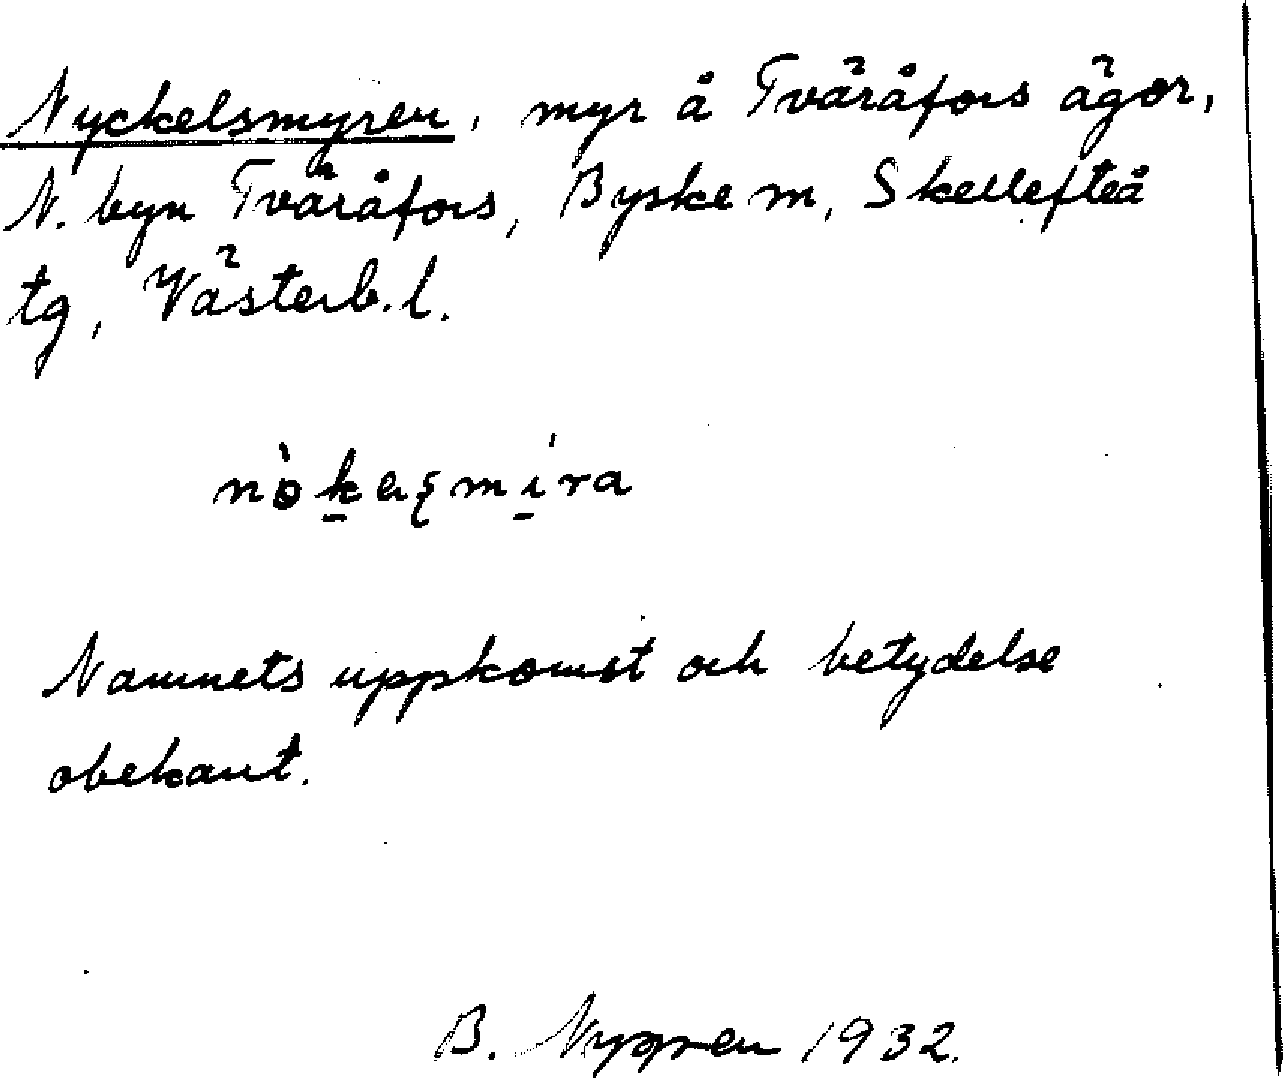 Nyckelsmyren, myr å Tväråfors ägor,
N. byn Tväråfors, Byske sn, Skellefteå
tg, Västerb. l.
Namnets uppkomst och betydelse
obekant.
B. Nygren 1932.